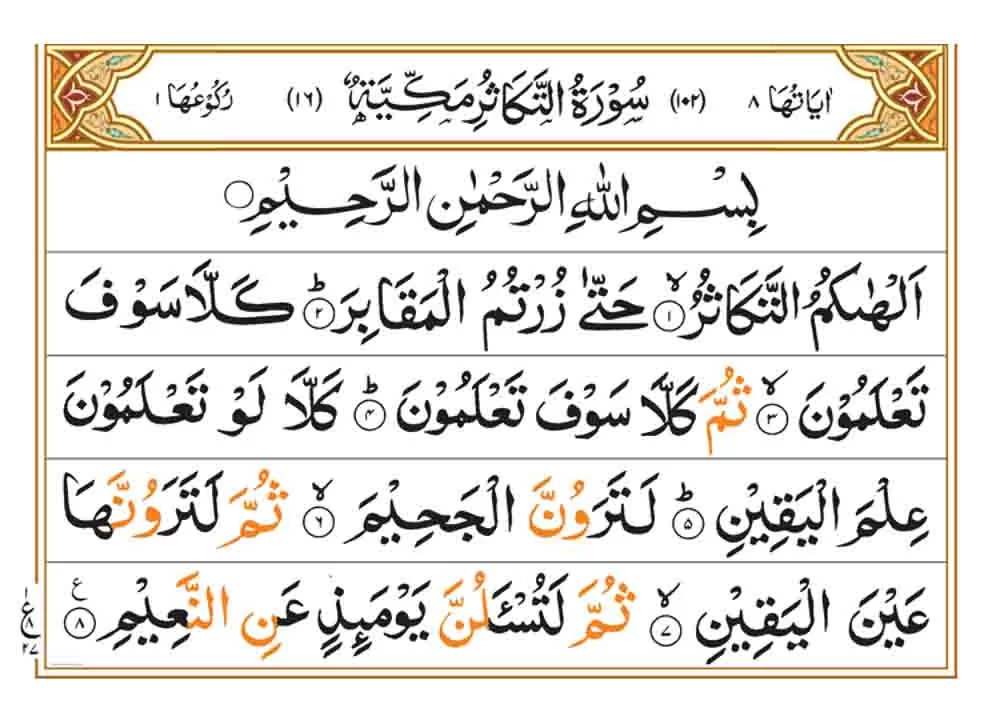 اٰيَاتُهَا ٨ (١٠٢) سُوْرَةُ التَّكَاثُرِ مَكِّيَّةٌ (١٦) رُكُوْعُهَا ١
بِسْمِ اللّٰهِ الرَّحْمٰنِ الرَّحِيْمِ
اَلْهٰىكُمُ التَّكَاثُرُ ۙ﴿١﴾ حَتّٰى زُرْتُمُ الْمَقَابِرَ ؕ﴿٢﴾ كَلَّا سَوْفَ
تَعْلَمُوْنَ ۙ﴿٣﴾ ثُمَّ كَلَّا سَوْفَ تَعْلَمُوْنَ ؕ﴿٤﴾ كَلَّا لَوْ تَعْلَمُوْنَ
عِلْمَ الْيَقِيْنِ ؕ﴿٥﴾ لَتَرَوُنَّ الْجَحِيْمَ ۙ﴿٦﴾ ثُمَّ لَتَرَوُنَّهَا
عَيْنَ الْيَقِيْنِ ۙ﴿٧﴾ ثُمَّ لَتُسْـَٔلُنَّ يَوْمَئِذٍ عَنِ النَّعِيْمِ ﴿٨﴾ ع
ع ٨ ٢٧